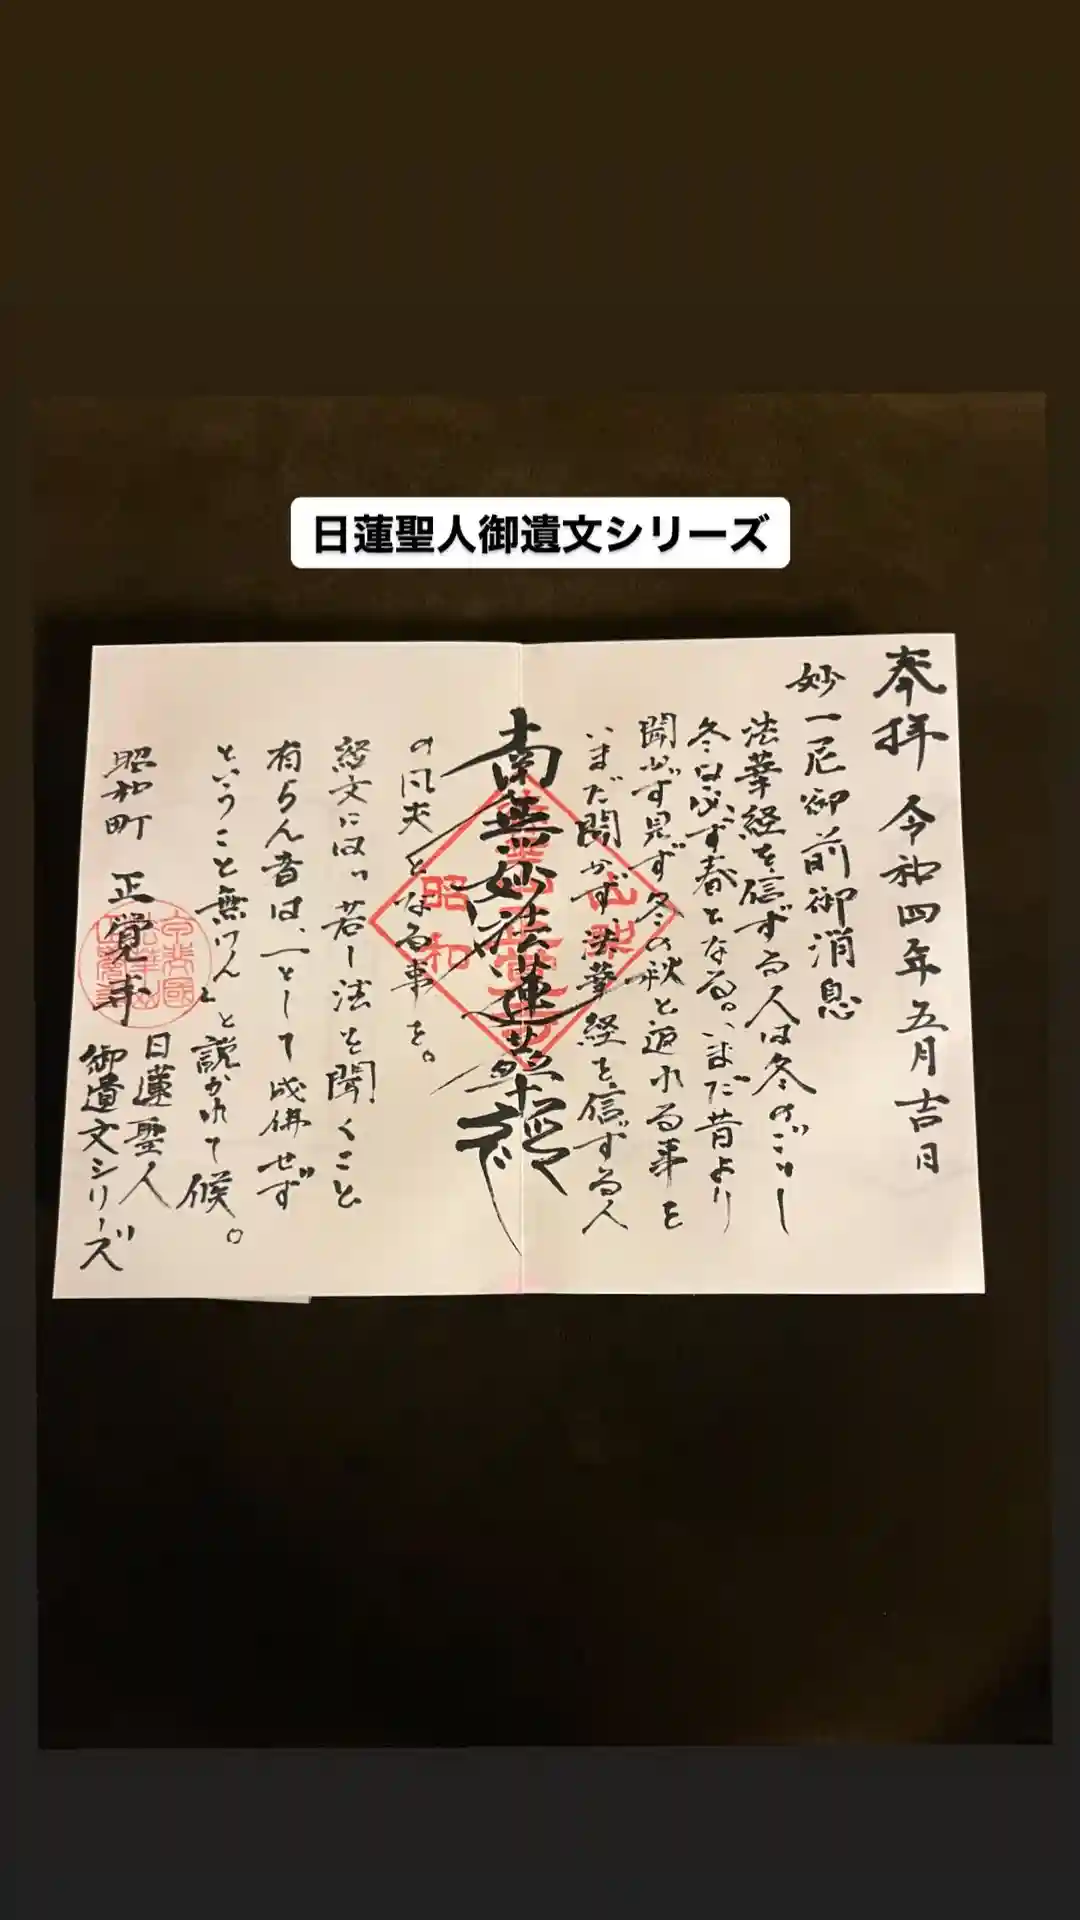 日蓮聖人御遺文シリーズ
奉拝 令和四年五月吉日
妙一尼御前御消息
法華経を信ずる人は冬のごとし
冬は必ず春となる。いまだ昔より
聞かず見ず冬の秋と返れる事を
いまだ聞かず、法華経を信ずる人
南無妙法蓮華経
の凡夫となる事を。
経文には「若し法を聞くこと
有らん者は、一として成佛せず
ということ無けん」と説かれて候。
昭和町 正覚寺
日蓮聖人
御遺文シリーズ
山梨
昭和